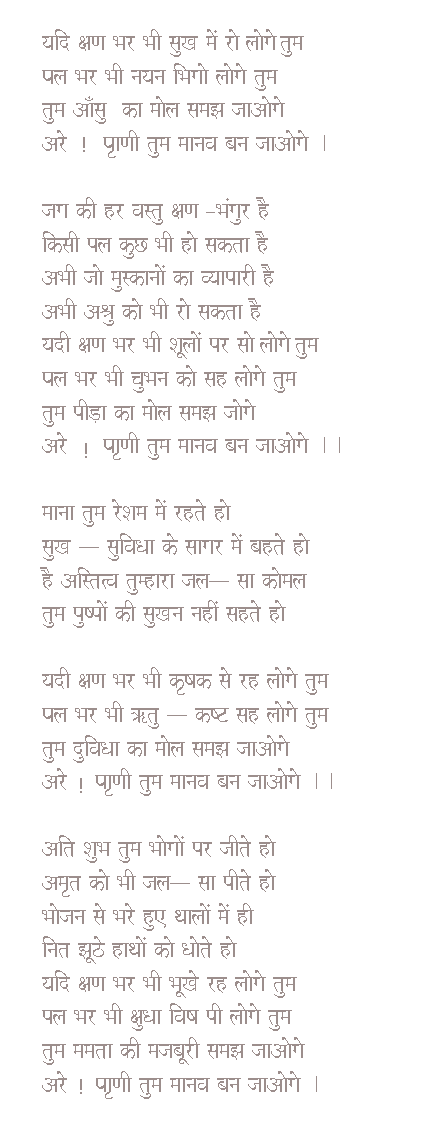 यदि क्षण भर भी सुख में रो लोगे तुम
पल भर भी नयन भिगो लोगे तुम
तुम आँसु का मोल समझ जाओगे
अरे ! प्राणी तुम मानव बन जाओगे |
जग की हर वस्तु क्षण –भंगुर है
किसी पल कुछ भी हो सकता है
अभी जो मुस्कानों का व्यापारी है
अभी अश्रु को भी रो सकता है
यदी क्षण भर भी शूलों पर सो लोगे तुम
पल भर भी चुभन को सह लोगे तुम
तुम पीड़ा का मोल समझ जोगे
अरे ! प्राणी तुम मानव बन जाओगे ||
माना तुम रेशम में रहते हो
सुख — सुविधा के सागर में बहते हो
है अस्तित्व तुम्हारा जल— सा कोमल
तुम पुष्पों की सुखन नहीं सहते हो
यदी क्षण भर भी कृषक से रह लोगे तुम
पल भर भी ऋतु — कष्ट सह लोगे तुम
तुम दुविधा का मोल समझ जाओगे
अरे ! प्राणी तुम मानव बन जाओगे ||
अति शुभ तुम भोगों पर जीते हो
अमृत को भी जल— सा पीते हो
भोजन से भरे हुए थालों में ही
नित झूठे हाथों को धोते हो
यदि क्षण भर भी भूखे रह लोगे तुम
पल भर भी क्षुधा विष पी लोगे तुम
तुम ममता की मजबूरी समझ जाओगे
अरे ! प्राणी तुम मानव बन जाओगे |